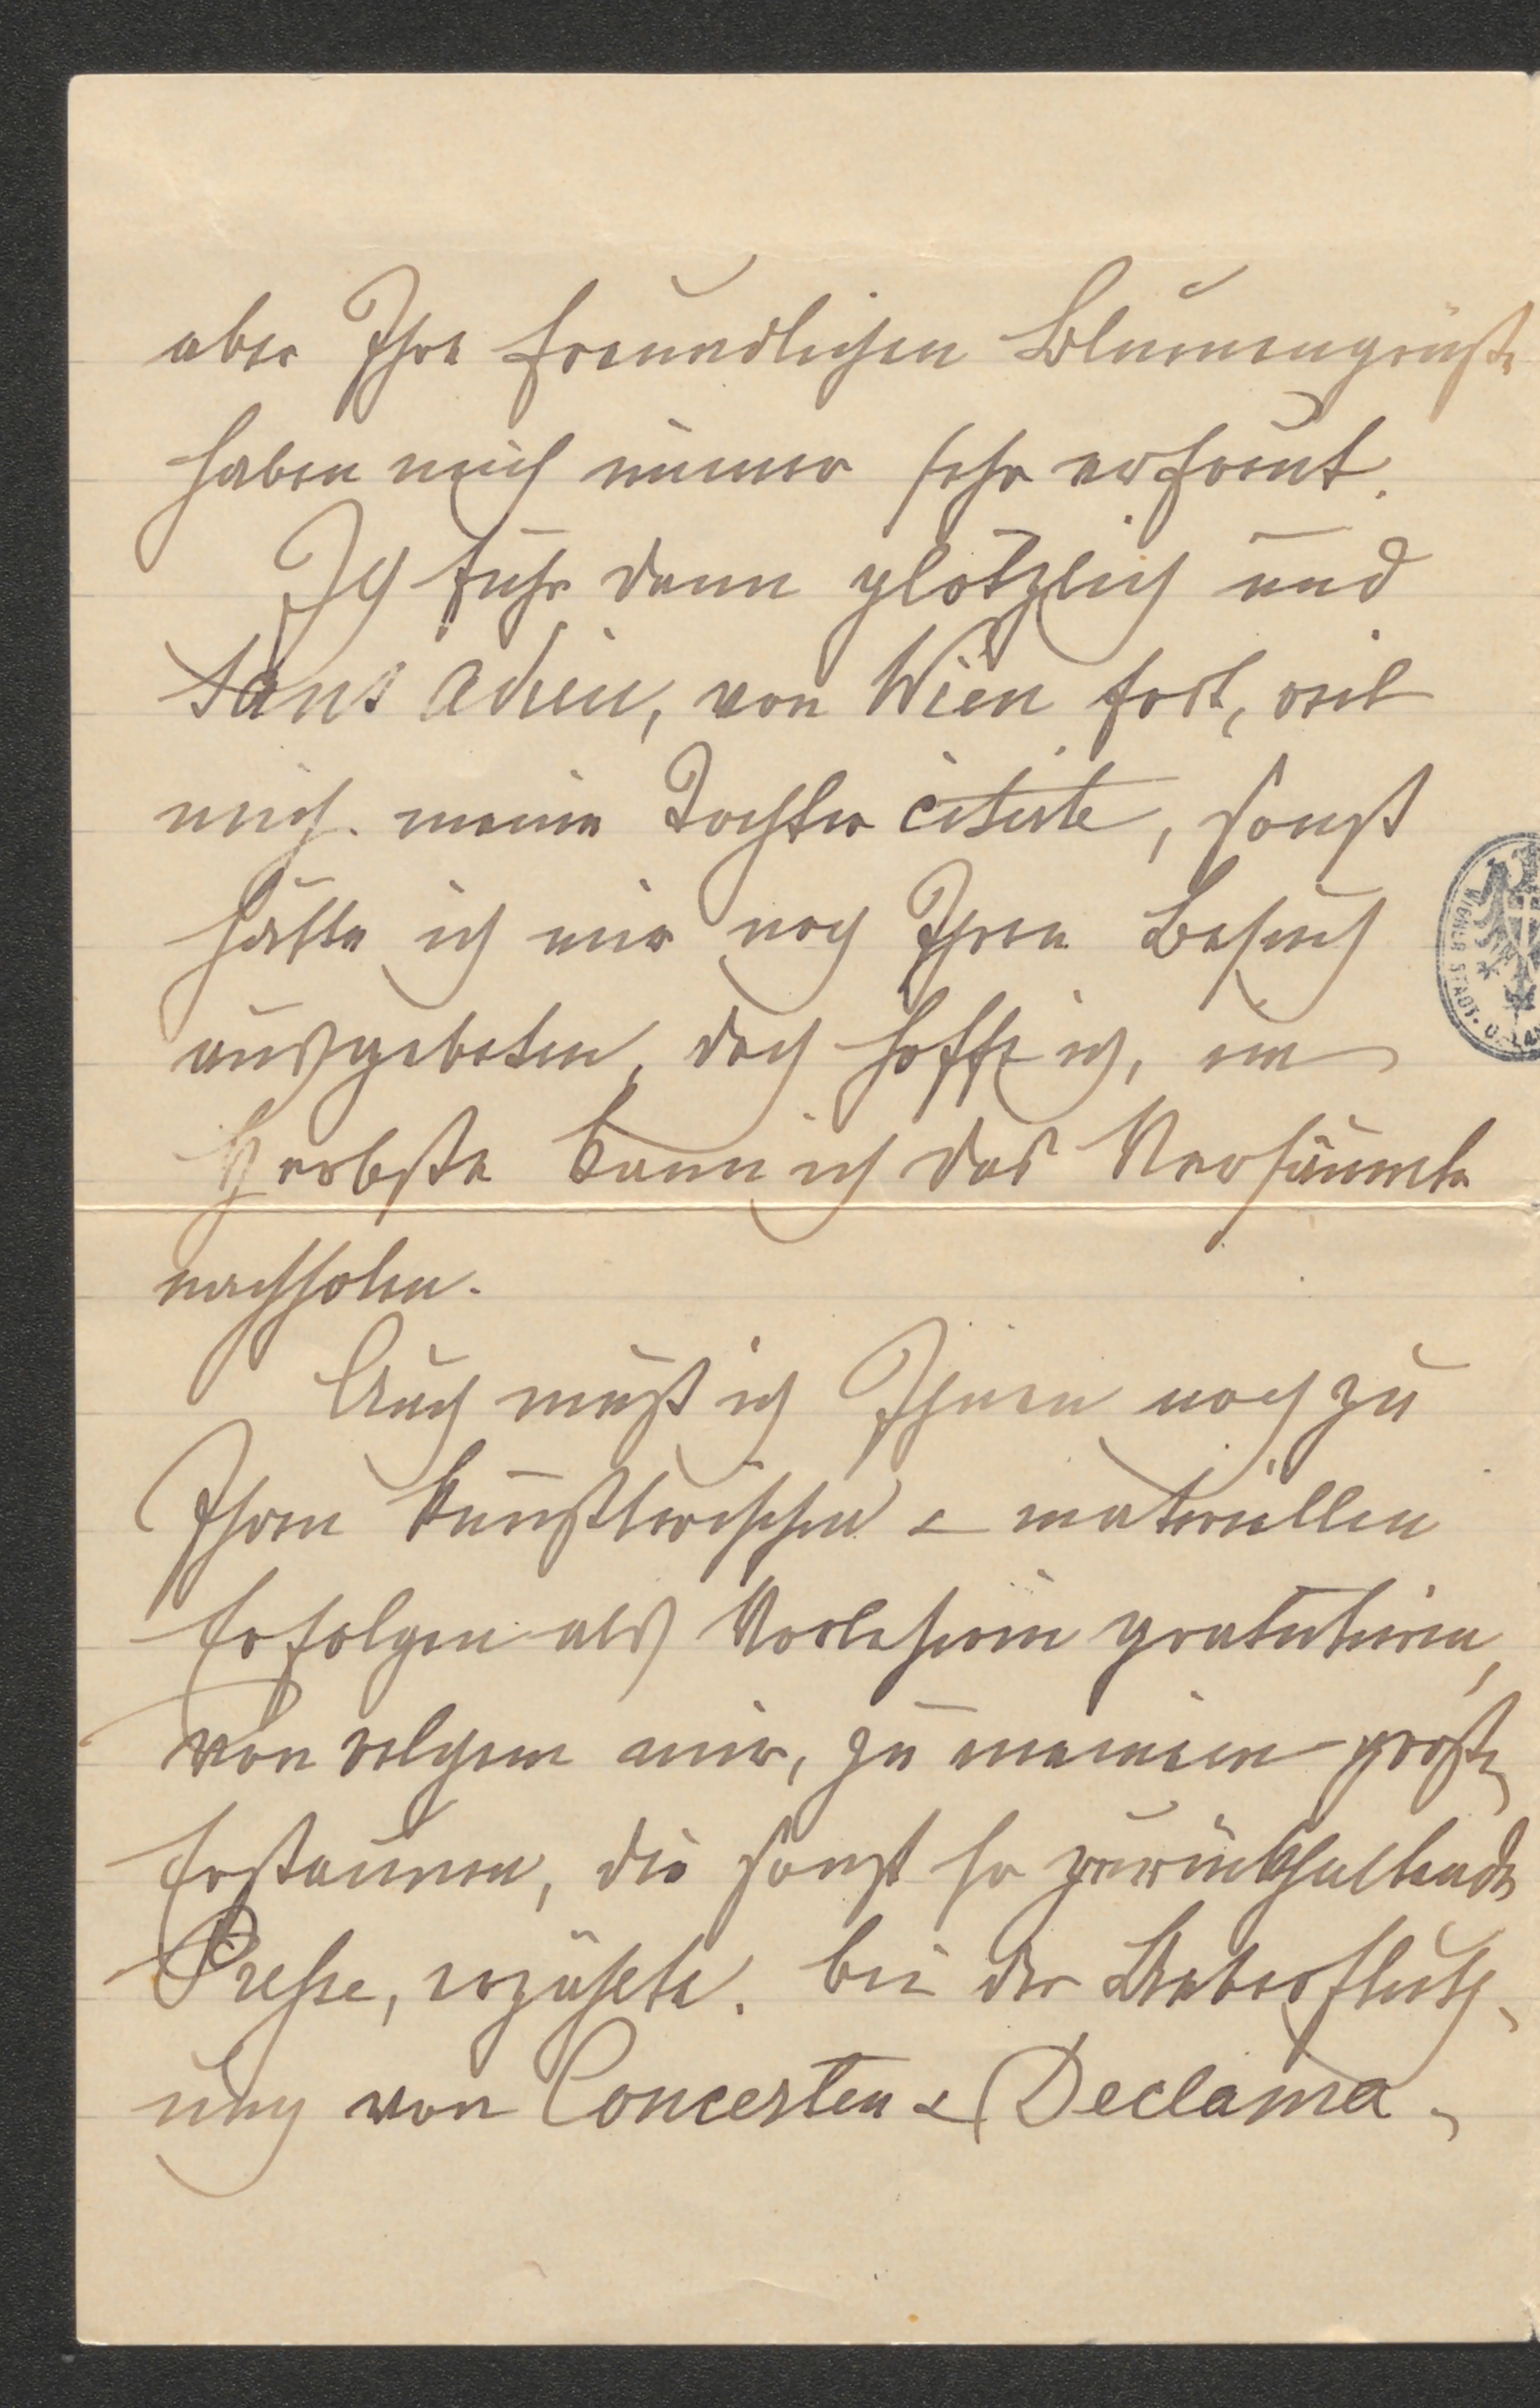 aber Ihre freundlichen Blumengrüße
haben mich immer sehr erfreut.
Ich fuhr dann plötzlich und
sans adieu, von Wien fort, weil
mich meine Tochter citirte, sonst
hätte ich mir noch Ihren Besuch
ausgebeten, doch hoffe ich, im
Herbste kann ich das Versäumte
nachholen.
Auch muß ich Ihnen noch zu
Ihren künstlerischen & materiellen
Erfolgen als Vorleserin gratuliren,
von welchem mir, zu meinem große
Erstaunen, die sonst so zurückhaltende
Presse, erzählte. Bei der Ueberfluth-
ung von Concerten & Declama-
WIENER STADT- U.